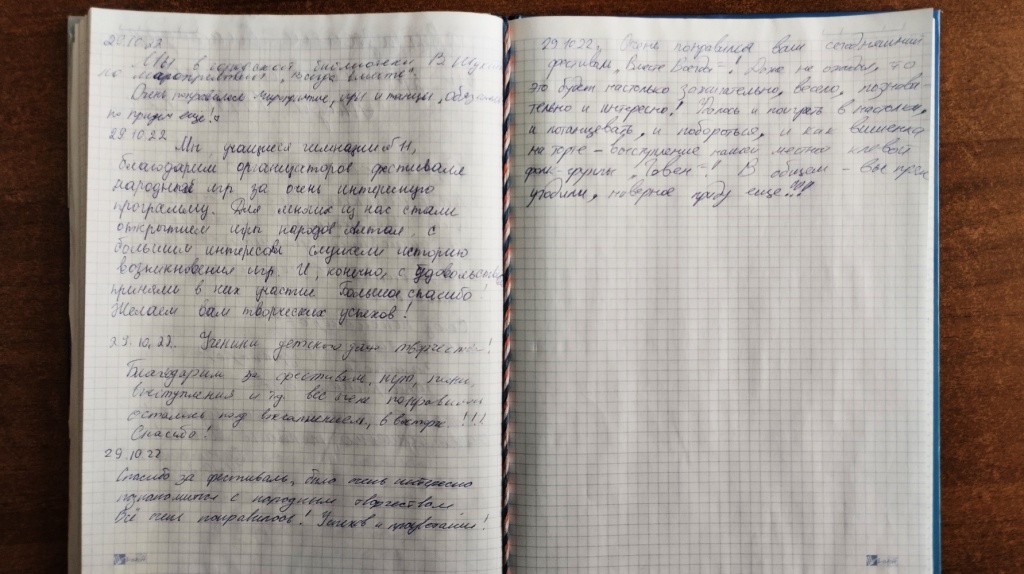 29.10.22
Мы в городской библиотеки.
на мароприятий "Всегда вместе".
Очень понравилось мероприятие, игры и танцы,
придём еще!
29.10.22
Мы, учащиеся гимназии №11,
благодарим организаторов фестиваля
народных игр за очень интересную
программу. Для многих из нас стали
открытием игры народов с
большим интересом слушали историю
возникновения игр. И, конечно, с удовольствием
приняли в них участие. Большое спасибо!
Желаем вам творческих успехов!
29.10.22. Ученики детского дома творчества!
Благодарим за фестиваль, игры,
выступления и т.д. все очень понравилось
остались под впечатлением, в восторге !!!
Спасибо!
29.10.22
Спасибо за фестиваль, было очень интересно
познакомится с народным творчеством.
Всё очень понравилось! Успехов и процветания!
29.10.22г. Очень понравился ваш сегодняшний
фестиваль "Вместе Всегда"! Даже не ожидал, что
это будет настолько зажигательно, весело, познава-
тельно и интересно! Далось и поиграть в настолки,
и потанцевать, и побороться, и как вишенка
на торте - выступление нашей местной клёвой
фолк-группы "Говен"! В общем - вы прям
угодили, наверное приду еще!!!